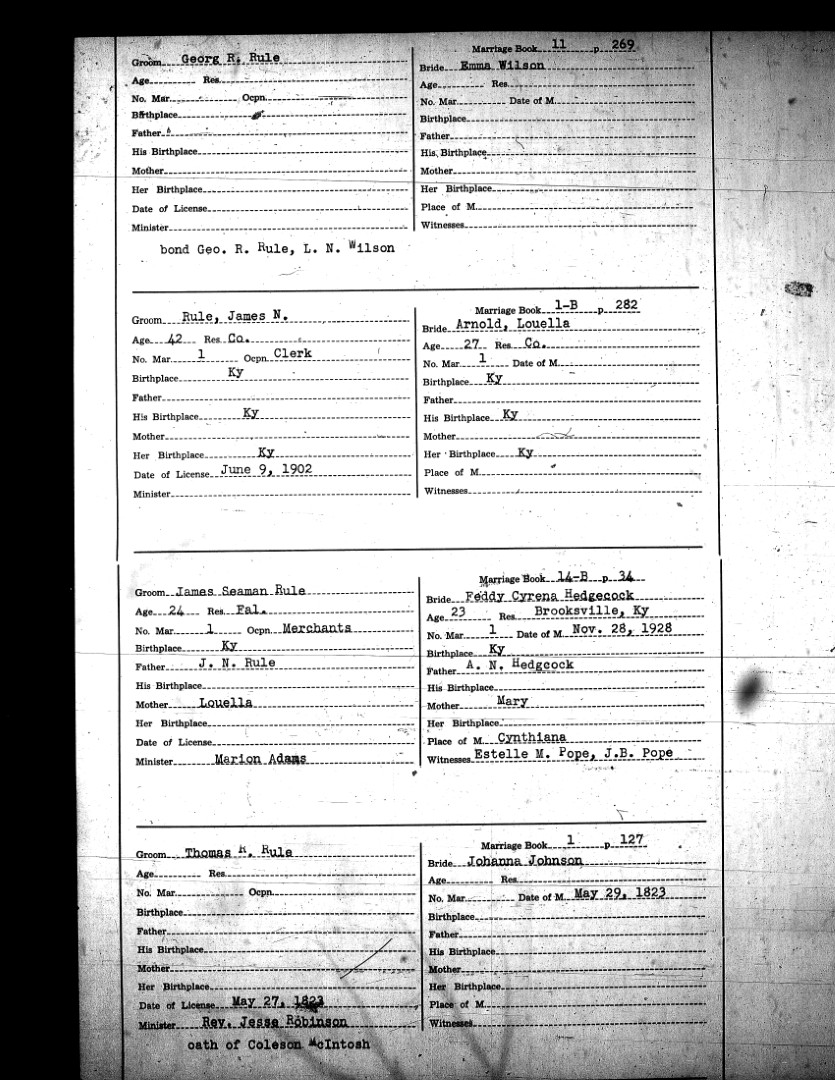 Marriage Book 11 p. 269
Groom Georg R. Rule
Bride Emma Wilson
Age Res.
Age Res.
No. Mar. Ocpn.
No. Mar. Date of M.
Birthplace
Birthplace
Father
Father
His Birthplace
His Birthplace
Mother
Mother
Her Birthplace
Her Birthplace
Date of License
Place of M.
Minister
Witnesses
bond Geo. R. Rule, L. N. Wilson
Marriage Book 1-B p. 282
Groom Rule, James N.
Bride Arnold, Louella
Age 42 Res Co.
Age 27 Res Co.
No. Mar 1 Ocpn. Clerk
No. Mar 1 Date of M.
Birthplace Ky
Birthplace Ky
Father
Father
His Birthplace Ky
His Birthplace Ky
Mother
Mother
Her Birthplace Ky
Her Birthplace Ky
Date of License June 9, 1902
Place of M.
Minister
Witnesses
Marriage Book 14-B p. 34
Groom James Seaman Rule
Bride Feddy Cyrena Hedgecock
Age 24 Res Fal.
Age 23 Res Brooksville, Ky
No. Mar 1 Ocpn. Merchants
No. Mar 1 Date of M. Nov. 28, 1928
Birthplace Ky
Birthplace Ky
Father J. N. Rule
Father A. N. Hedgcock
His Birthplace
His Birthplace
Mother Louella
Mother Mary
Her Birthplace
Her Birthplace
Date of License
Place of M. Cynthiana
Minister Marion Adams
Witnesses Estelle M. Pope, J.B. Pope
Marriage Book 1 p. 127
Groom Thomas R. Rule
Bride Johanna Johnson
Age Res.
Age Res.
No. Mar. Ocpn.
No. Mar. Date of M. May 29, 1823
Birthplace
Birthplace
Father
Father
His Birthplace
His Birthplace
Mother
Mother
Her Birthplace
Her Birthplace
Date of License May 27, 1823
Place of M.
Minister Rev. Jesse Robinson
Witnesses
oath of Coleson McIntosh